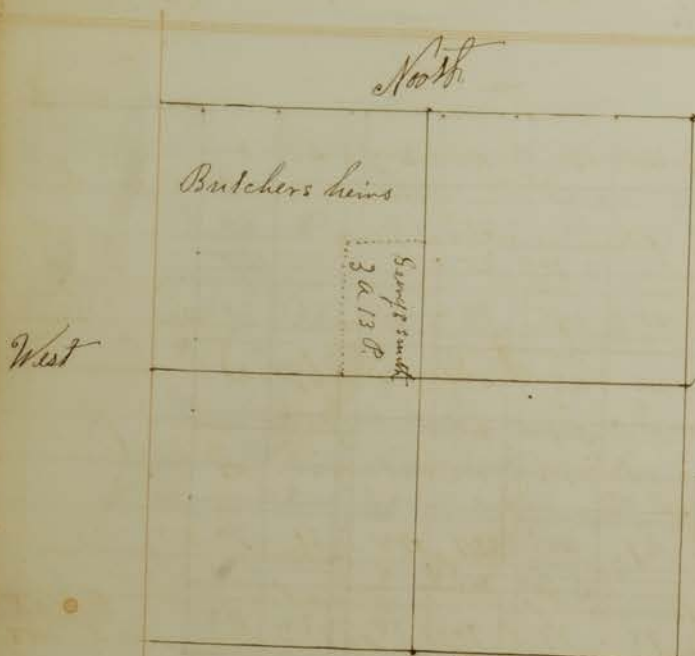 North
Butchers heirs
George Smith
3 a 13 P.
West